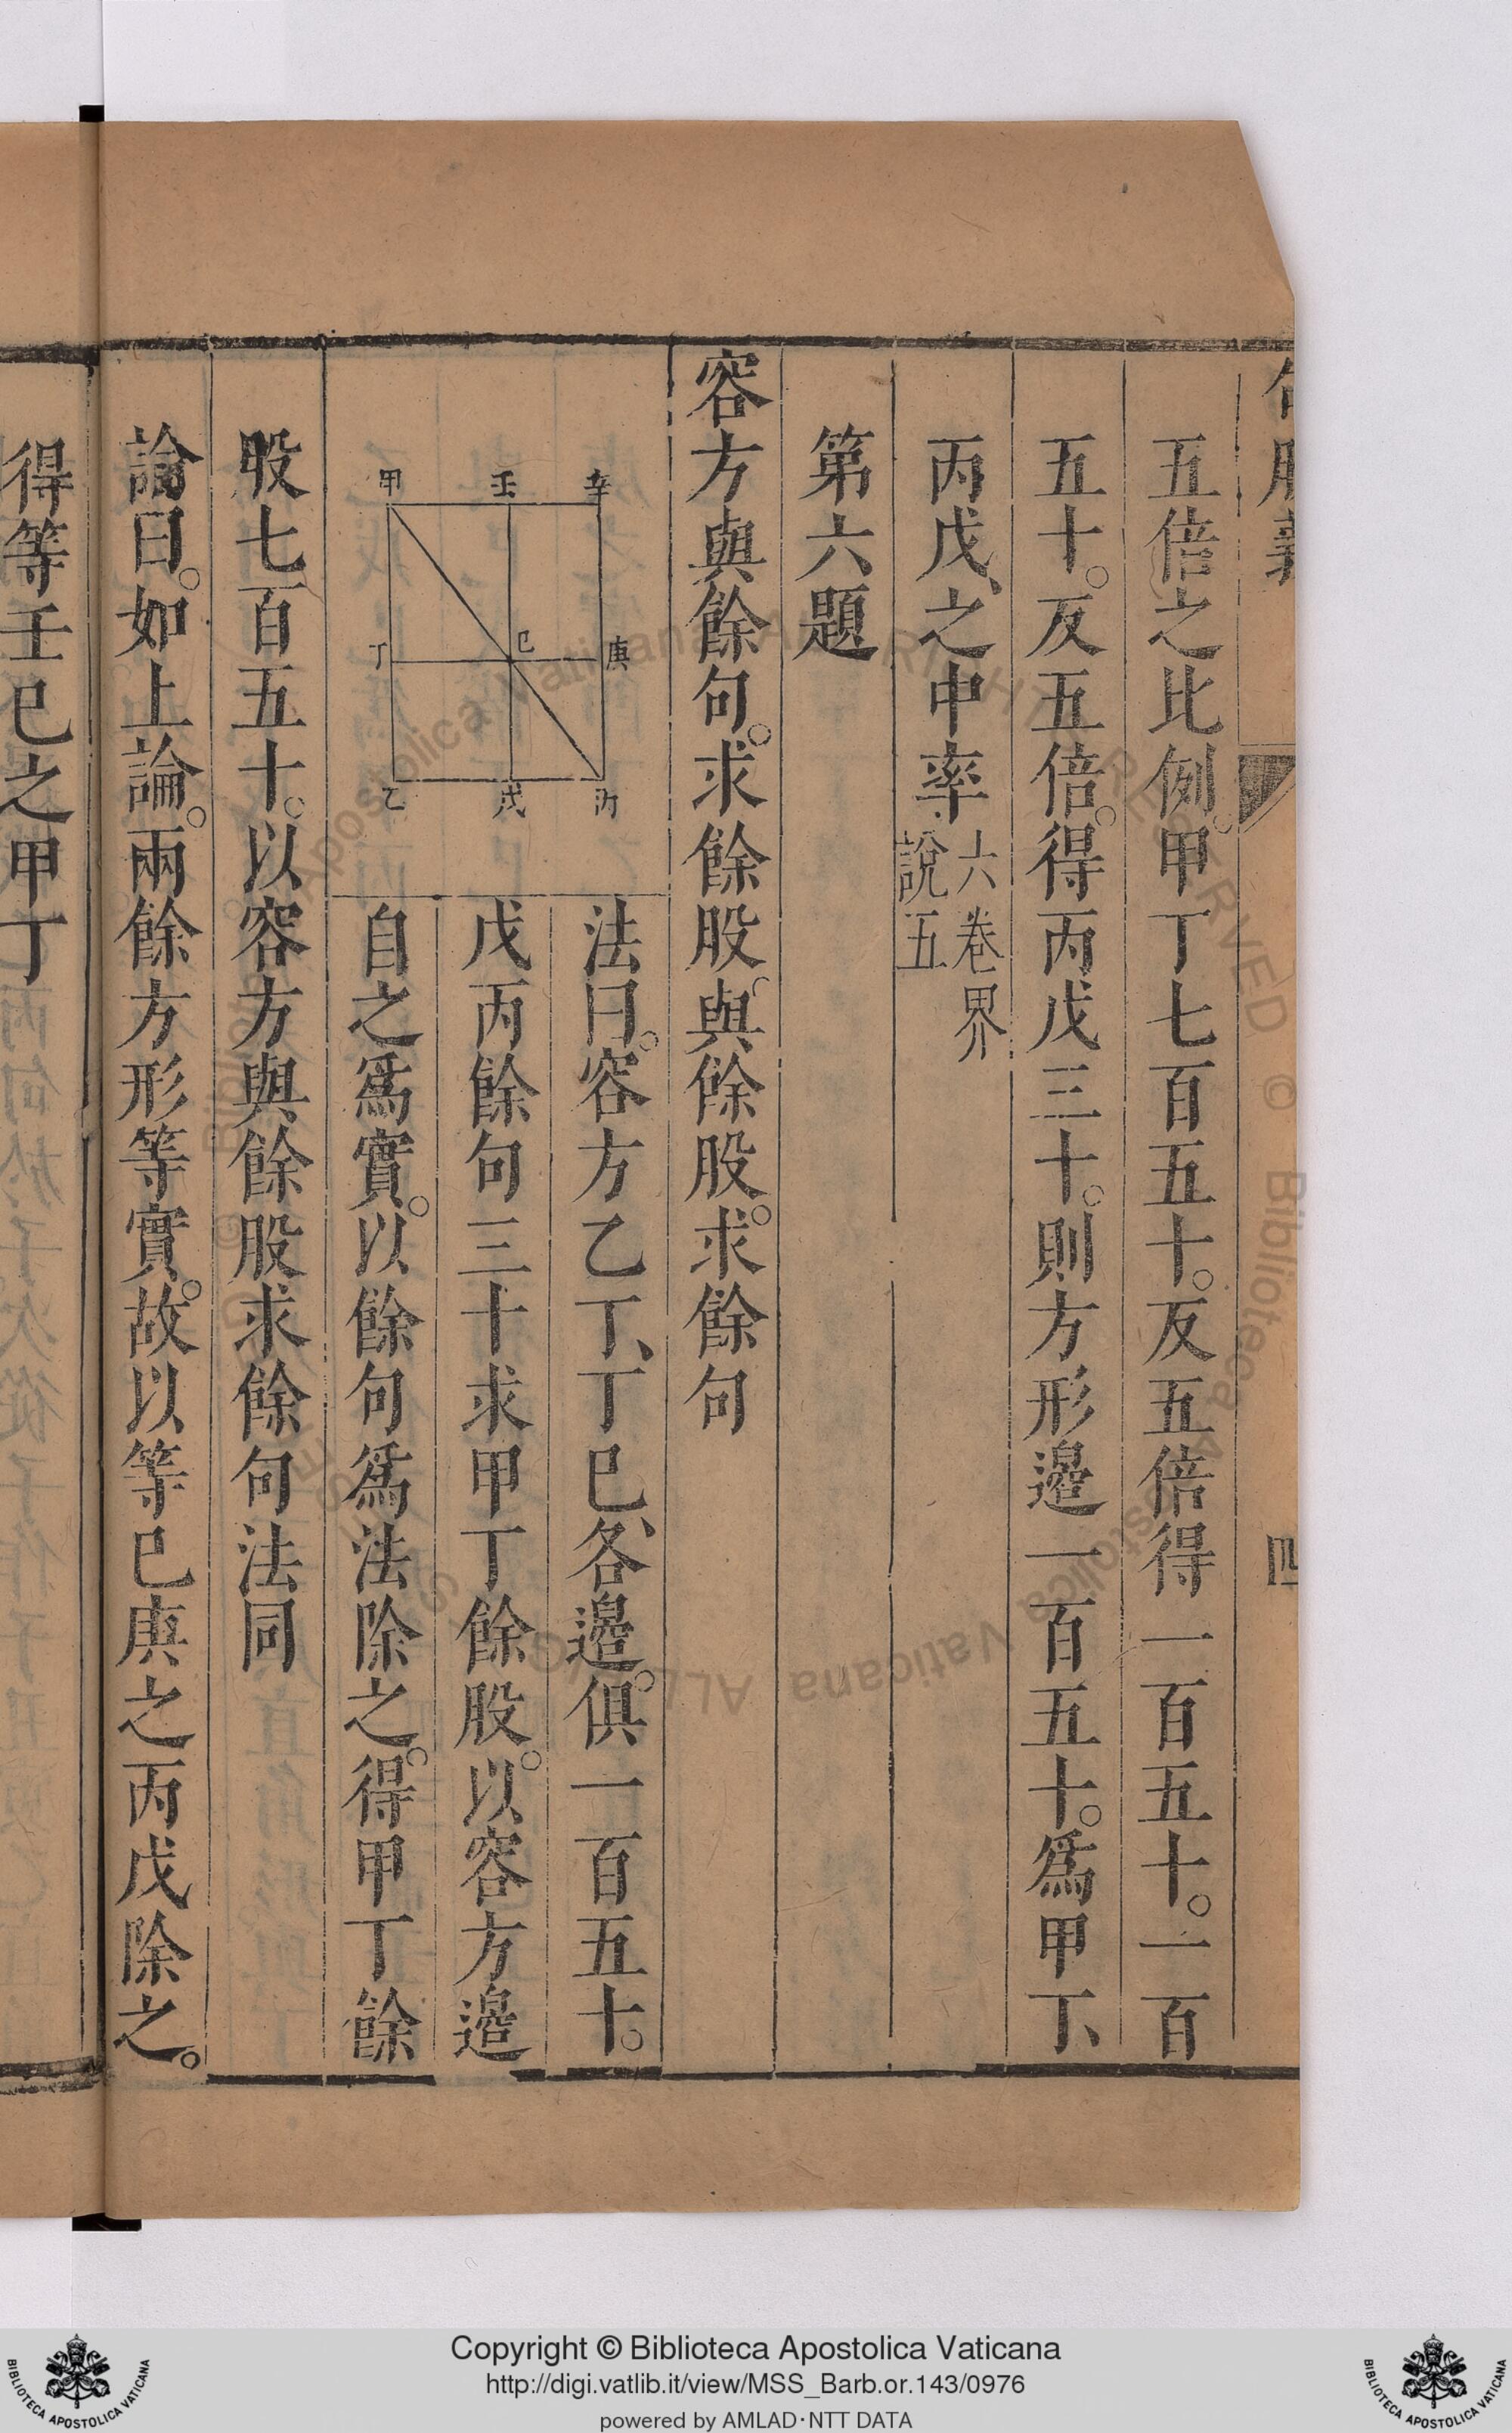 句股義
四
五倍之比例。甲丁七百五十。反五倍得一百五十。一百
五十。反五倍。得丙戊三十。則方形邊一百五十。爲甲丁、
丙戊、之中率六卷界
說五
第六題
容方與餘句。求餘股。與餘股。求餘句
辛
壬
甲
庚
己
丁
丙
戊
乙
法曰。容方乙丁、丁巳、各邊。俱一百五十。
戊丙餘句三十求甲丁餘股。以容方邊
自之爲實。以餘句爲法除之。得甲丁餘
股七百五十。以容方與餘股求餘句法同
論曰。如上論。兩餘方形等實。故以等巳庚之丙戊除之。
得等壬巳之甲丁
Copyright © Biblioteca Apostolica Vaticana
http://digi.vatlib.it/view/MSS_Barb.or.143/0976
powered by AMLAD·NTT DATA
BIBLIOTECA APOSTOLICA VATICANA
BIBLIOTECA APOSTOLICA VATICANA